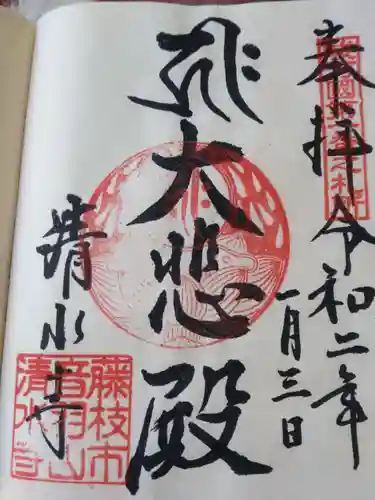 奉拝
令和二年
一月三日
大悲殿
清水寺
藤枝市
音羽山
清水寺